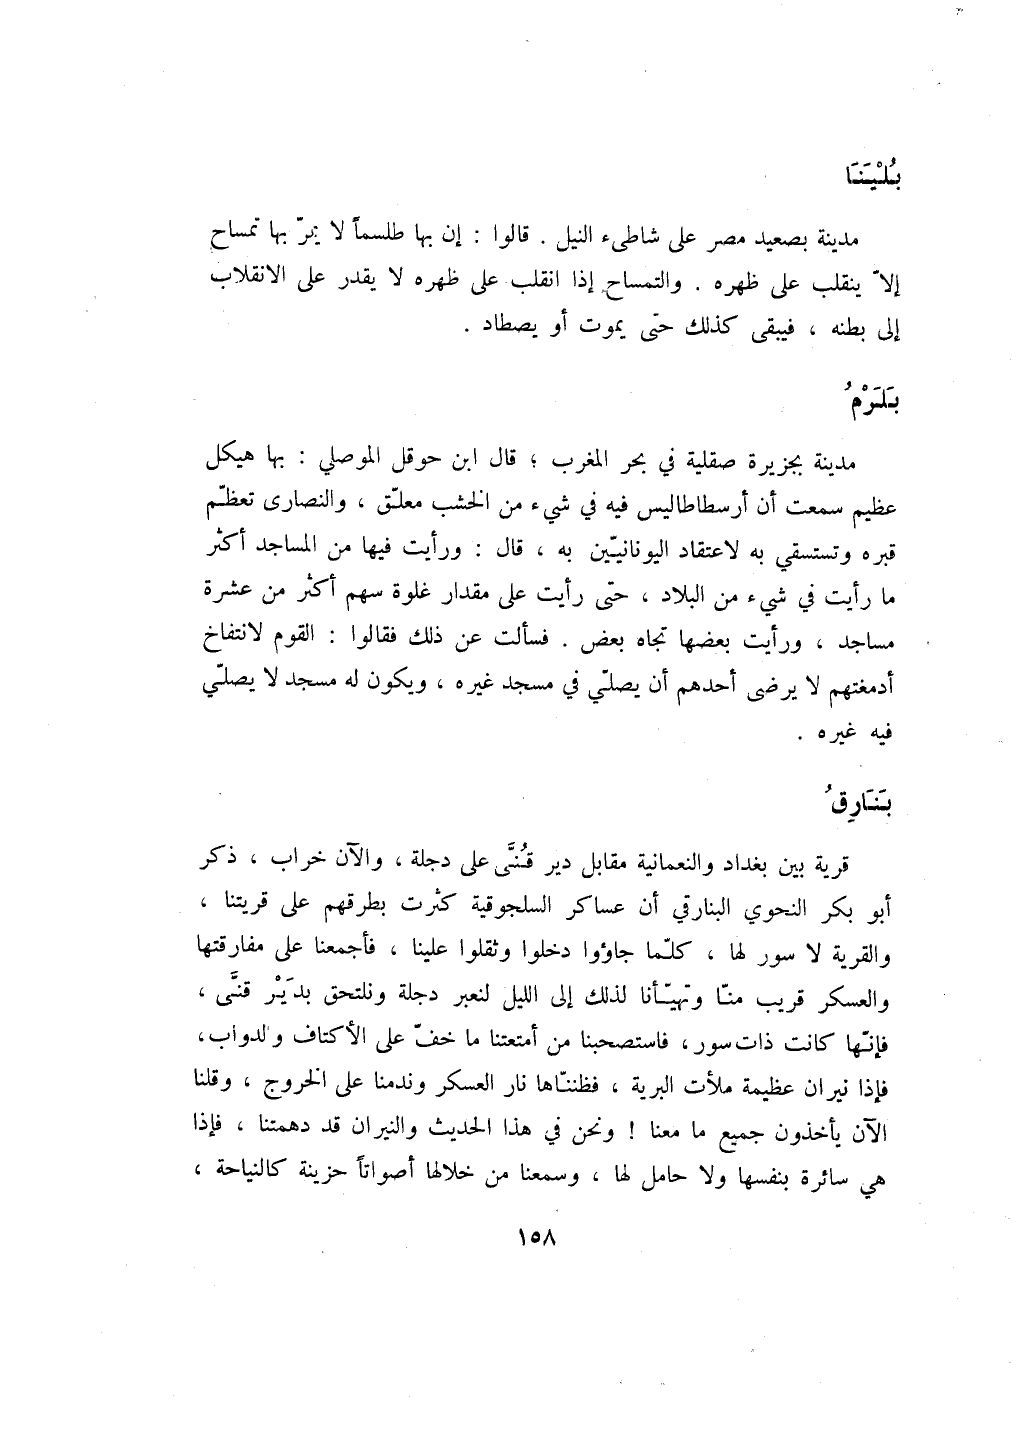 بُلْيَنَا
مدينة بصعيد مصر على شاطىء النيل . قالوا : إن بها طلسماً لا يمرّ بها تمساح
إلاّ ينقلب على ظهره . والتمساح إذا انقلب على ظهره لا يقدر على الانقلاب
إلى بطنه ، فيبقى كذلك حتّى يموت أو يصطاد .
بَلَرْمُ
مدينة بجزيرة صقلية في بحر المغرب ؛ قال ابن حوقل الموصلي : بها هيكل
عظيم سمعت أن أرسطاطاليس فيه في شيء من الخشب معلّق ، والنصارى تعظّم
قبره وتستسقي به لاعتقاد اليونانيّين به ، قال : ورأيت فيها من المساجد أكثر
ما رأيت في شيء من البلاد ، حتّى رأيت على مقدار غلوة سهم أكثر من عشرة
مساجد ، ورأيت بعضها تجاه بعض . فسألت عن ذلك فقالوا : القوم لانتفاخ
أدمغتهم لا يرضى أحدهم أن يصلّي في مسجد غيره ، ويكون له مسجد لا يصلّي
فيه غيره .
بَنَارِقُ
قرية بين بغداد والنعمانية مقابل دير قُنَّى على دجلة ، والآن خراب ، ذكر
أبو بكر النحوي البنارقي أن عساكر السلجوقية كثرت بطرقهم على قريتنا ،
والقرية لا سور لها ، كلّما جاؤوا دخلوا وثقلوا علينا ، فأجمعنا على مفارقتها
والعسكر قريب منّا وتهيّأنا لذلك إلى الليل لنعبر دجلة ونلتحق بدَيْر قنَّى ،
فإنّها كانت ذات سور ، فاستصحبنا من أمتعتنا ما خفّ على الأكتاف والدواب ،
فإذا نيران عظيمة ملأت البرية ، فظننّاها نار العسكر وندمنا على الخروج ، وقلنا
الآن يأخذون جميع ما معنا ! ونحن في هذا الحديث والنيران قد دهمتنا ، فإذا
هي سائرة بنفسها ولا حامل لها ، وسمعنا من خلالها أصواتاً حزينة كالنياحة ،
١٥٨